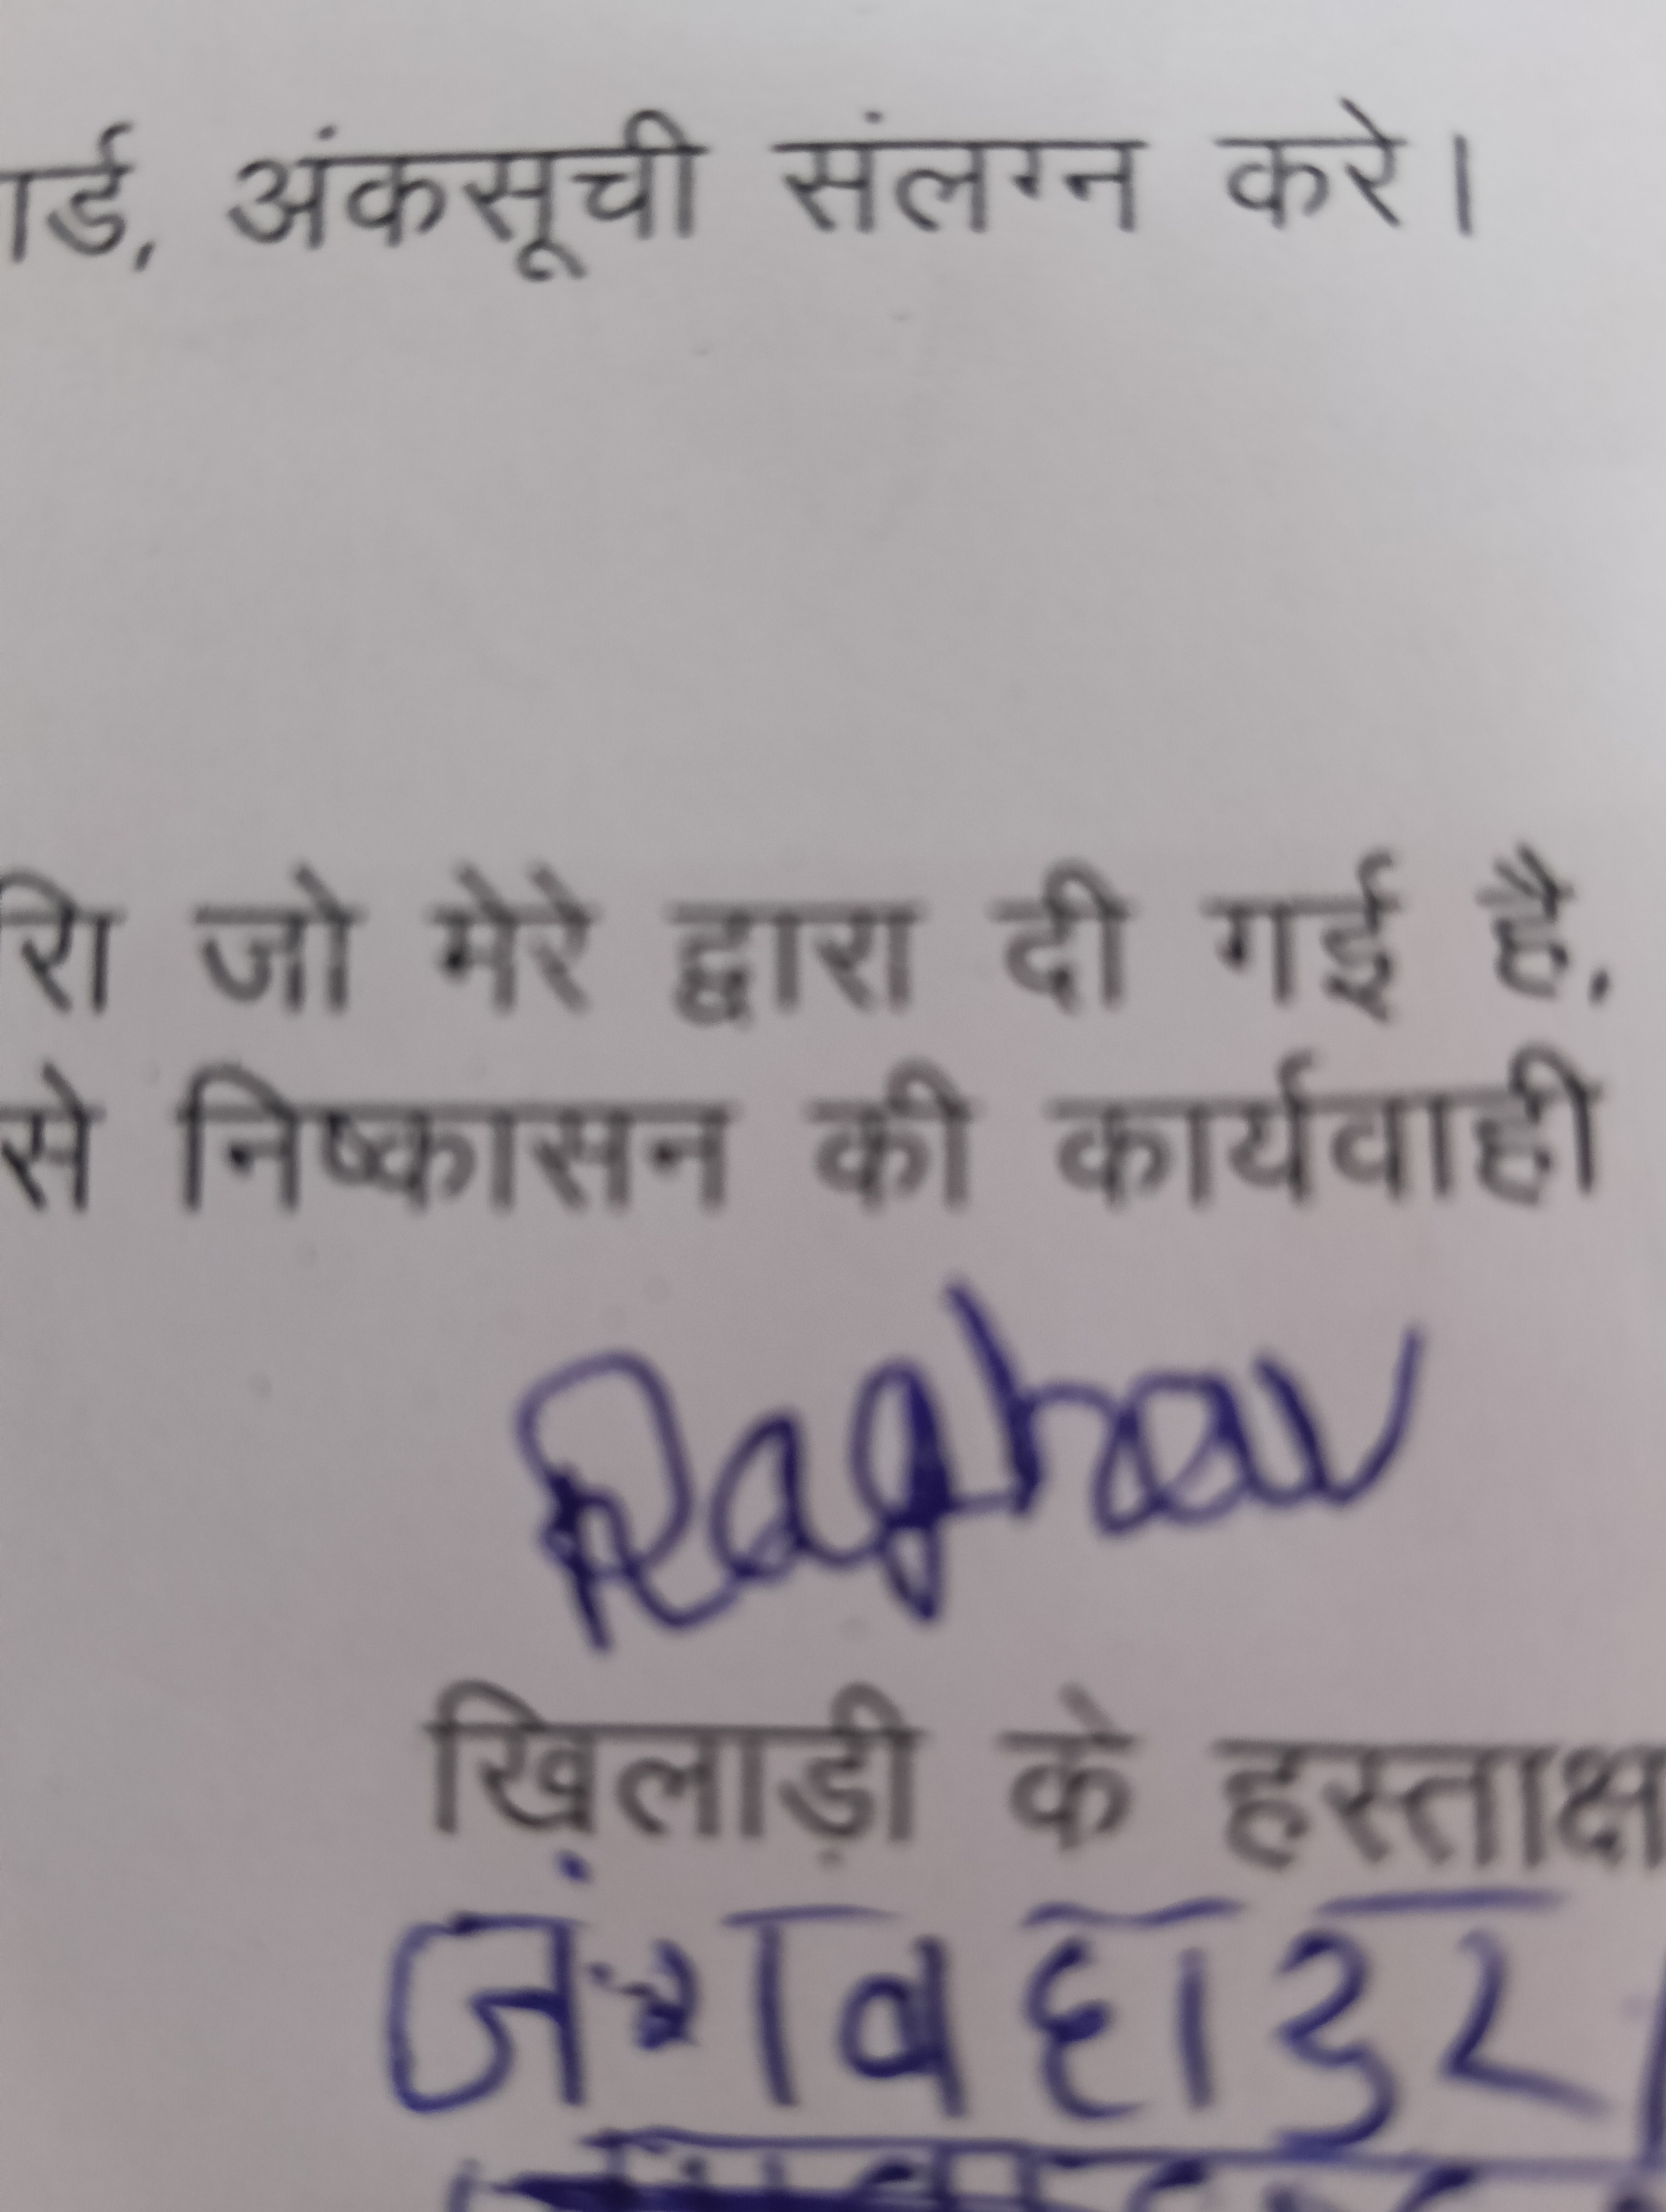 र्ड, अंकसूची संलग्न करे।
जो मेरे द्वारा दी गई है,
से निष्कासन की कार्यवाही
Raghav
खिलाड़ी के हस्ताक्ष